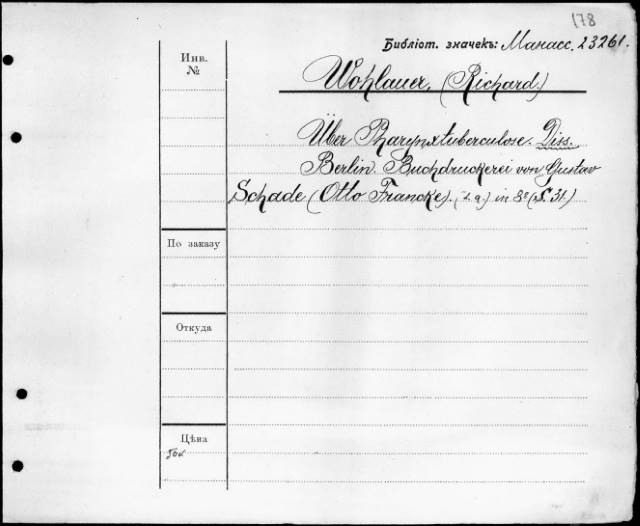 178
Библіот. значекъ: Манасс. 23261.
Инв. №
Wohlauer, (Richard.)
Über Pharynxtuberculose. Diss.
Berlin. Buchdruckerei von Gustav
Schade (Otto Francke). (s. a.) in 8º (S. 31.)
По заказу
Откуда
Цѣна
50к